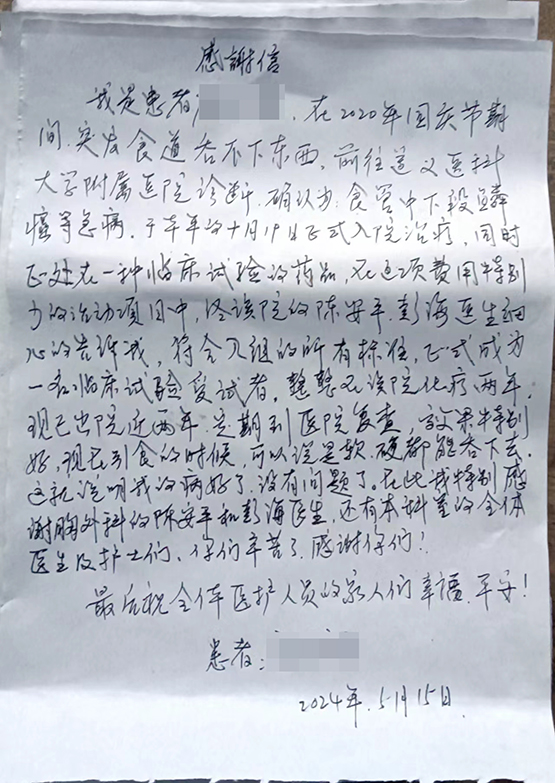 感謝信
我是患者 在2020年国庆节期
间.突发食道吞不下东西,前往遵义医科
大学附属医院诊断.确认为:食管中下段鳞
癌等急病.于本年的十月19日正式入院治疗,同时
正处在一种临床试验的药品,在这项费用特别
的活动项目中,经该院的陈安平.彭海医生细
心的告诉我,符合入组的所有标准,正式成为
一名临床试验受试者,整整在该院化疗两年,
现已出院近两年.定期到医院复查,效果特别
好,现已引食的时候,可以说是软.硬都能吞下去,
这就说明我的病好了,没有问题了.在此我特别感
谢胸外科的陈安平和彭海医生,还有本科室的全体
医生及护士们、你们辛苦了.感谢你们!
最后祝全体医护人员的家人们幸福.平安!
患者:
2024年.5月15日.